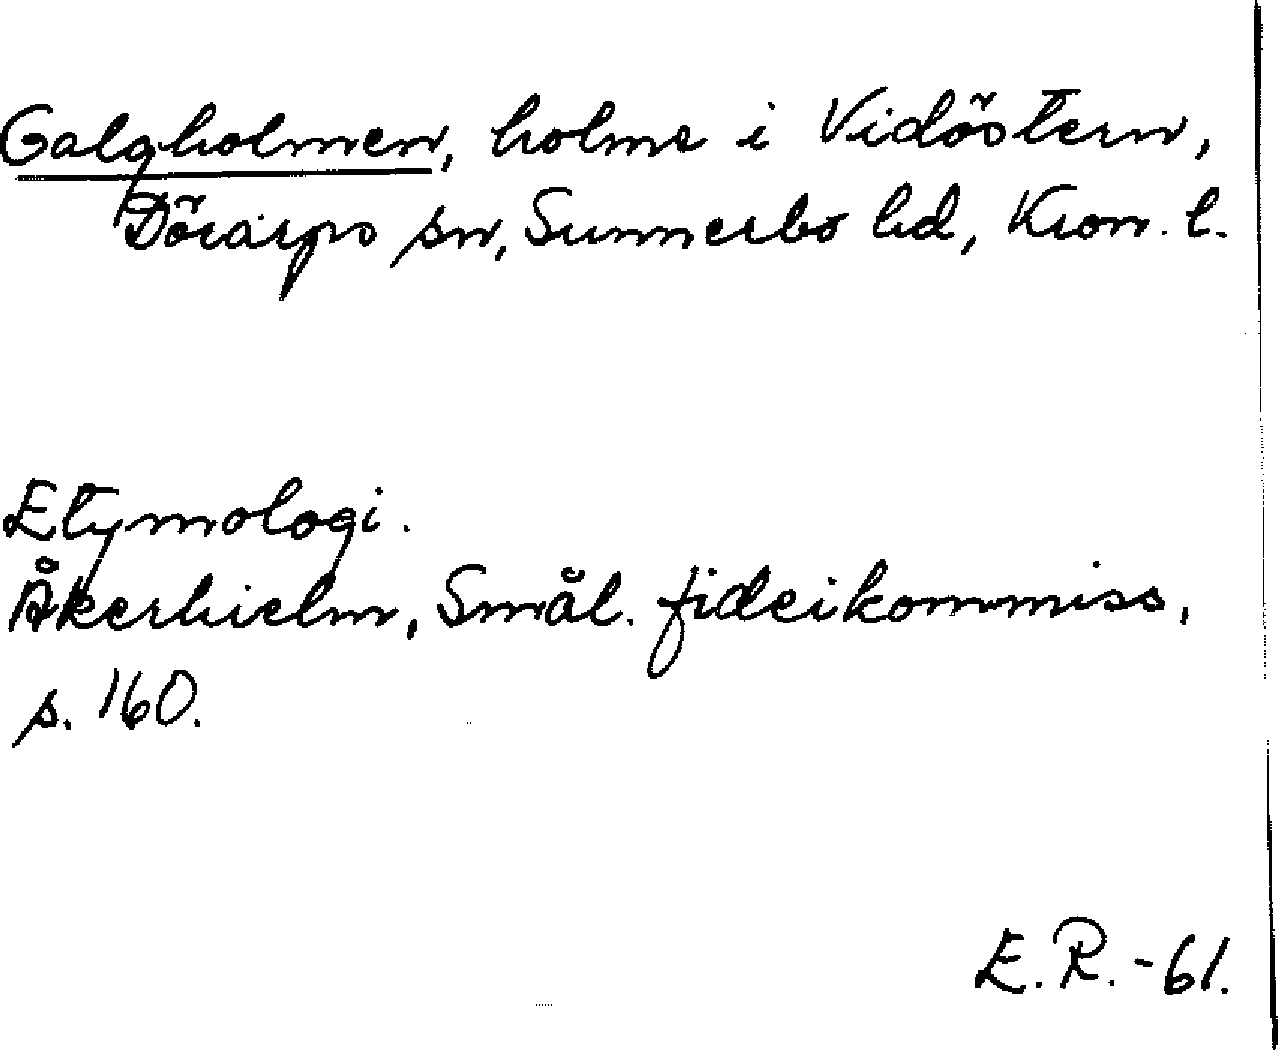 Galgholmen, holme i Vidöstern,
Dörarps sn, Sunnerbo hd, Kron. l.
Etymologi.
Åkerhielm, Smål. fideikommiss,
s. 160.
E. R. -61.